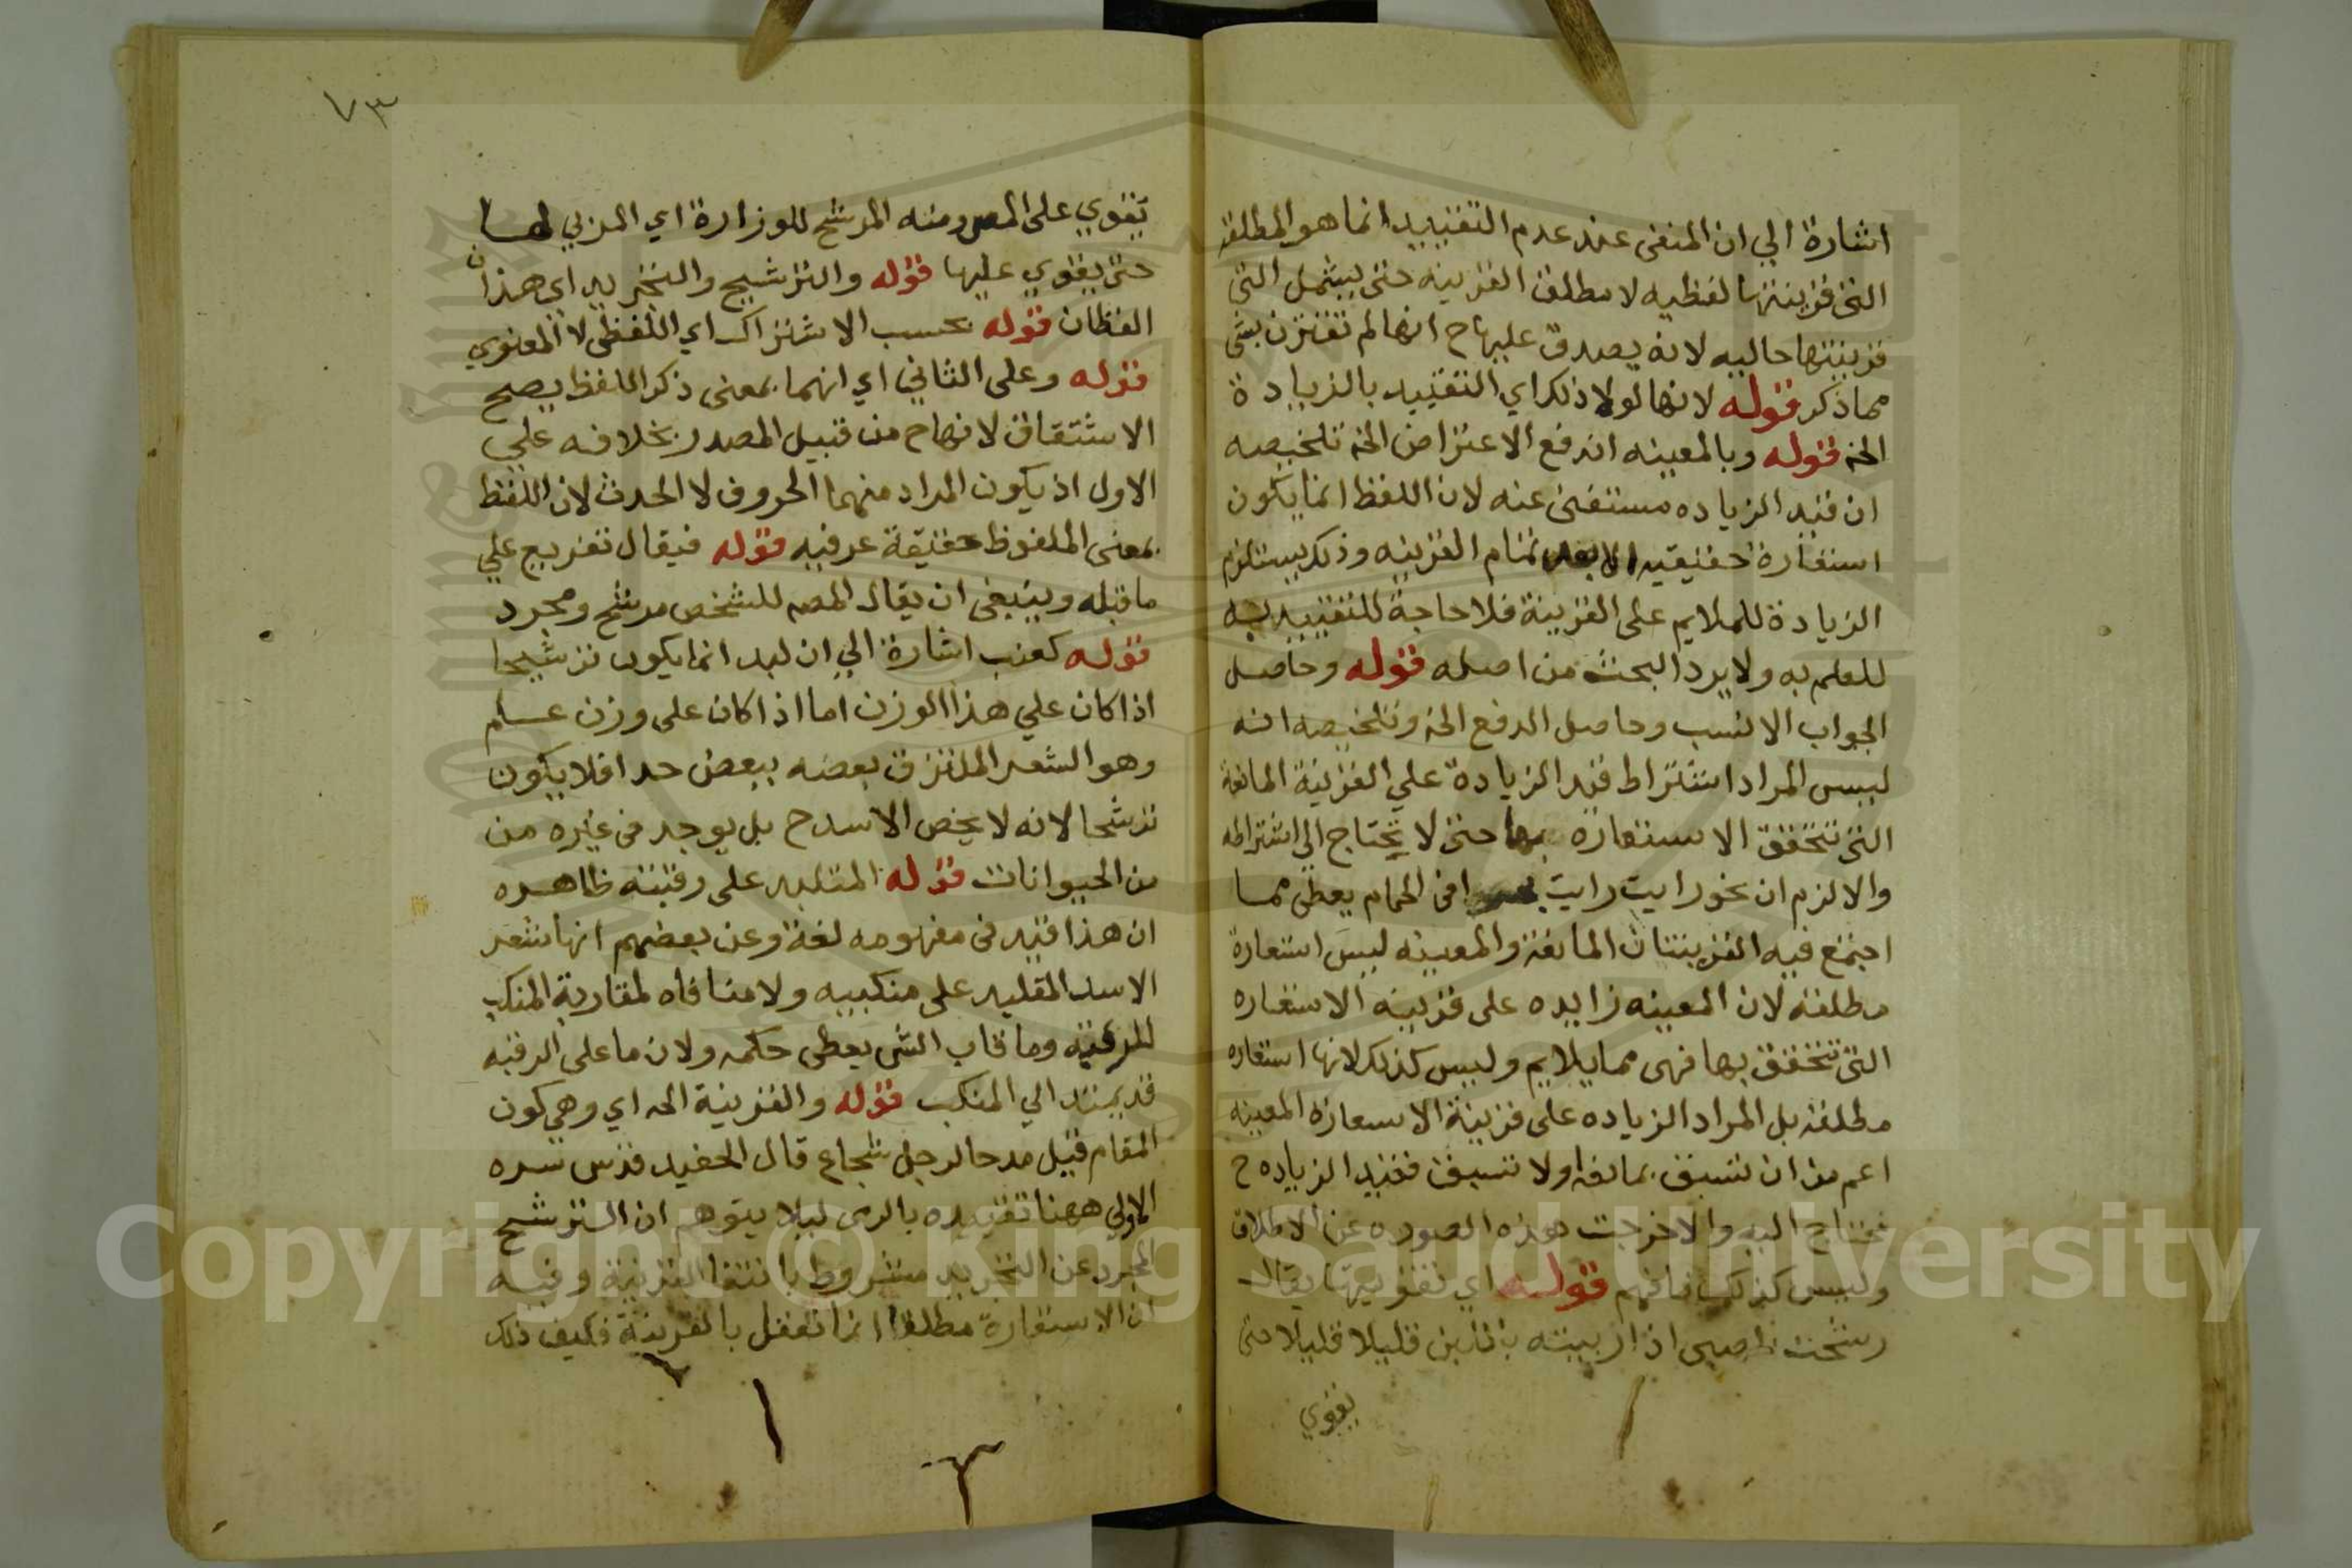 اشارة الي ان المنفى عند عدم التقييد انما هو المطلقه
التى قرينتها لفظيه لا مطلق القرينه حتى يشمل التى
قرينتها حاليه لانه يصدق عليها ح انها لم تقترن بشى
مما ذكر قوله لانها لولا ذلك اي التقييد بالزيادة
الخ قوله وبالمعينه اندفع الاعتراض الخ تلخيصه
ان قيد الزياده مستغنى عنه لان اللفظ انما يكون
استعارة حقيقيه الا بعد تمام القرينه وذلك يستلزم
الزيادة للملايم على القرينة فلا حاجة للتقييد به
للعلم به ولا يرد البحث من اصله قوله وحاصل
الجواب الانسب وحاصل الدفع الخ وتلخيصه انه
ليس المراد اشتراط قيد الزيادة علي القرينة المانعة
التى تتحقق الاستعارة بها حتى لا يحتاج الى اشتراطه
والا لزم ان نحو رايت رايت فى الحمام يعطى مما
اجتمع فيه القرينتان المانعة والمعينه ليس استعارة
مطلقة لان المعينه زايده على قرينة الاستعاره
التى تتحقق بها فهى مما يلايم وليس كذلك لانها استعاره
مطلقة بل المراد الزياده على قرينة الاسعارة المعينه
اعم من ان تسبق بمانعة اولا تسبق فقيد الزياده ح
يحتاج اليه والا خرجت هذه الصوره عن الاطلاق
وليس كذلك فافهم قوله اي تقويتها يقال
رشحت الصبى اذا ربيته باللبن قليلا قليلا حتى
يقوي
٧٣
يقوي على المص ومنه المرشح للوزارة اي المربي لها
حتى يقوي عليها قوله والترشيح والتجريد اى هذان
اللفظان قوله بحسب الاشتراك اي اللفظى لا المعنوي
قوله وعلى الثاني اي انهما بمعنى ذكر اللفظ يصح
الاشتقاق لانهما ح من قبيل المصدر بخلافه علي
الاول اذ يكون المراد منهما الحروف لا الحدث لان اللفظ
بمعنى الملفوظ حقيقة عرفيه قوله فيقال تفريع علي
ما قبله وينبغى ان يقال المص للشخص مرشح ومجرد
قوله كعنب اشارة الي ان لبد انما يكون ترشيحا
اذا كان علي هذا الوزن اما اذا كان على وزن علم
وهو الشعر الملتزق بعضه ببعض حدا فلا يكون
ترشحا لانه لا يخص الاسد ح بل يوجد فى غيره من
من الحيوانات قوله المتلبد على رقبته ظاهره
ان هذا قيد فى مفهومه لغة وعن بعضهم انها شعر
الاسد المتلبد على منكبيه ولا منافاه لمقاربة المنكب
للرقبه وما قاب الشى يعطى حكمه ولان ما على الرقبه
قد يمتد الي المنكب قوله والقرينة الخ اي وهى كون
المقام قبيل مدحا لرجل شجاع قال الحفيد قدس سره
الاولي ههنا تقييده بالرى ليلا يتوهم ان الترشيح
المجرد عن التجريد مشروط بانتفا القرينة وفيه
ان الاستعارة مطلقا انما تعقل بالقرينة فكيف ذلك